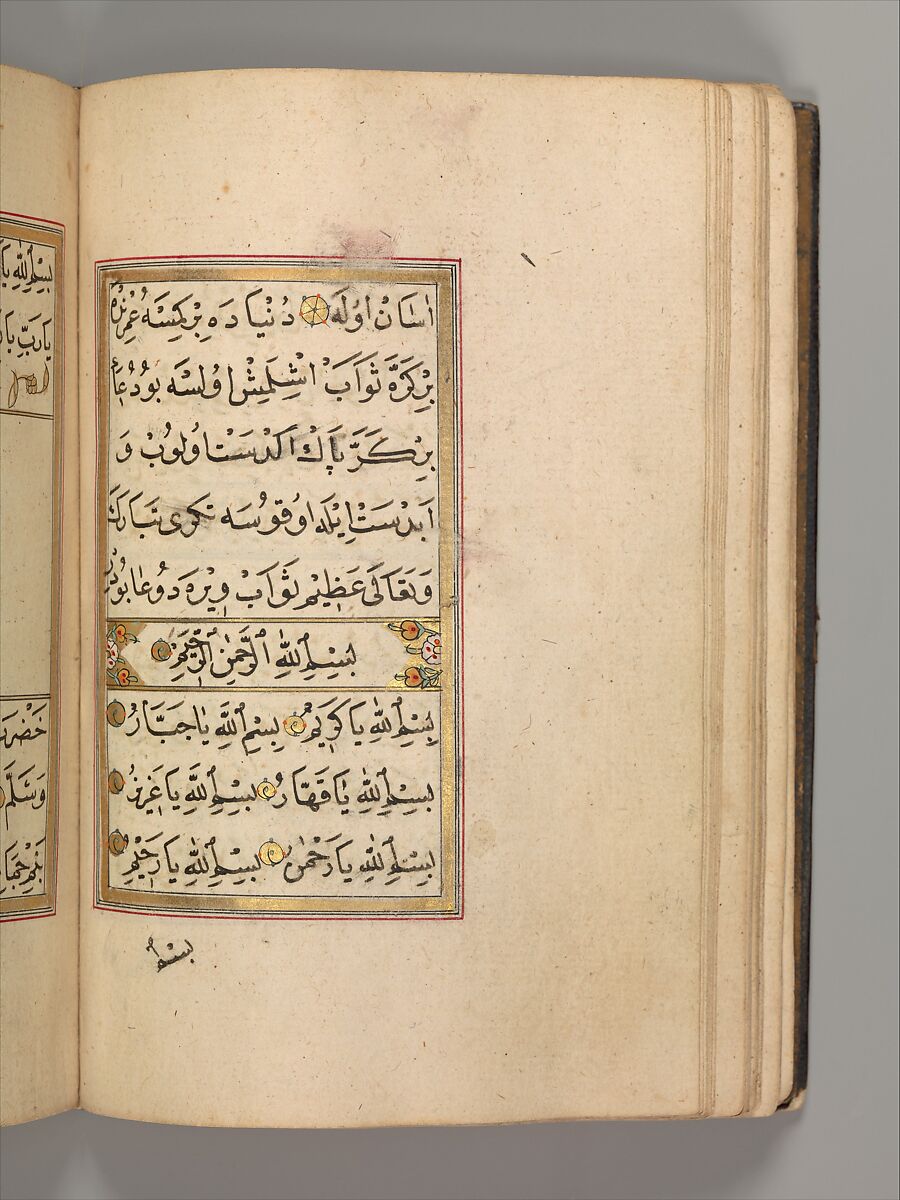 اٰسَانْ اوُلَه دُنْيَادَه بِرْكِمْسَهْ عُمْرِنْدَه
بِرْكَرَّه ثَوَابْ اشْلَمِشْ اوُلسَه بوُدُعَا
بِرْكَرَّه پَاكْ اَبْدَسْتْ اوُلوُبْ وَ
اَبْدَسْتْ اِيْلَه اوُقوُسَه تَكْرى تَبَارَكَ
وَتَعَالَى عَظِيمْ ثَوَابْ وِيْرَه دوُعَا بوُدُرْ
بِسْمِ اللّٰهِ الرَّحْمٰنِ الرَّحِيمِ
بِسْمِ اللّٰهِ يَا كَرِيمُ بِسْمِ اللّٰهِ يَا جَبَّارُ
بِسْمِ اللّٰهِ يَا قَهَّارُ بِسْمِ اللّٰهِ يَا عَزِيزُ
بِسْمِ اللّٰهِ يَا رَحْمٰنُ بِسْمِ اللّٰهِ يَا رَحِيمُ
بسم
بِسْمِ اللّٰهِ يَا
يَارَبِّ يَا
حَضْرَت
وَسَلَّمَ